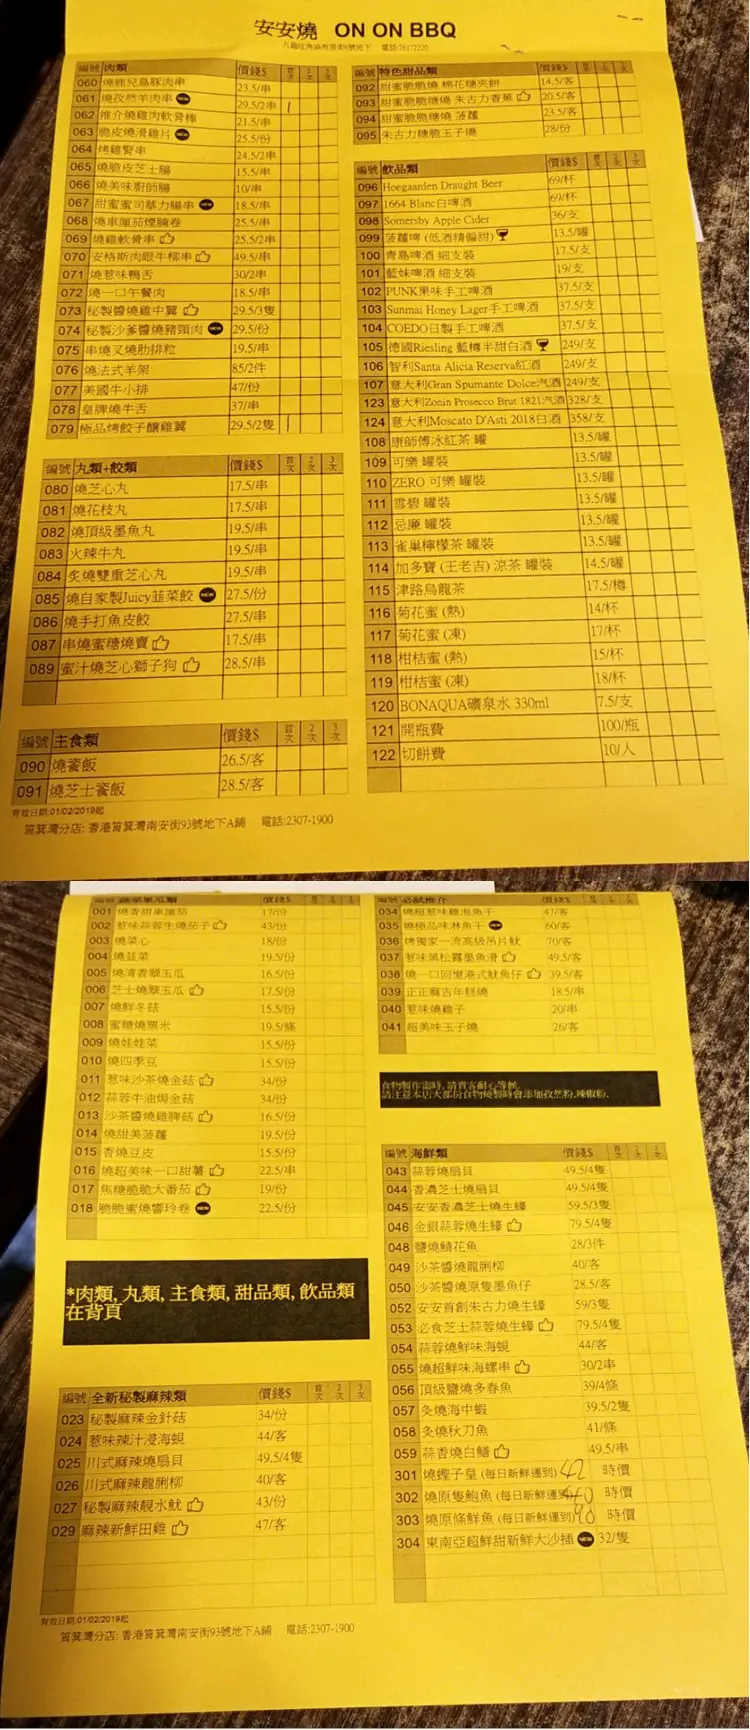 安安燒 ON ON BBQ
編號 肉類 價錢$ 首次 2次 3次
060 燒鹿兒島豚肉串 23.5/串
061 燒孜然羊肉串 NEW 29.5/2串
062 推介燒雞肉軟骨棒 21.5/串
063 脆皮燒滑雞片 NEW 25.5/份
064 烤雞腎串 24.5/2串
065 燒脆皮芝士腸 15.5/串
066 燒美味廚師腸 10/串
067 甜蜜蜜司華力腸串 NEW 18.5/串
068 燒車厘茄煙腩卷 25.5/串
069 燒雞軟骨串 25.5/2串
070 安格斯肉眼牛柳串 49.5/串
071 燒惹味鴨舌 30/2串
072 燒一口午餐肉 18.5/串
073 秘製醬燒雞中翼 29.5/3隻
074 秘製沙爹醬燒豬頸肉 NEW 29.5/份
075 串燒叉燒肋排粒 19.5/串
076 燒法式羊架 85/2件
077 美國牛小排 47/份
078 皇牌燒牛舌 37/串
079 極品烤餃子釀雞翼 29.5/2隻
編號 丸類+餃類 價錢$ 首次 2次 3次
080 燒芝心丸 17.5/串
081 燒花枝丸 17.5/串
082 燒頂級墨魚丸 19.5/串
083 火辣牛丸 19.5/串
084 炙燒雙重芝心丸 19.5/串
085 燒自家製Juicy韮菜餃 NEW 27.5/份
086 燒手打魚皮餃 27.5/串
087 串燒蜜糖燒賣 17.5/串
089 蜜汁燒芝心獅子狗 28.5/串
編號 主食類 價錢$ 首次 2次 3次
090 燒飯 26.5/客
091 燒芝士飯 28.5/客
有效日期:01/02/2019起
筲箕灣分店: 香港筲箕灣南安街93號地下A鋪 電話:2307-1900
編號 特色甜品類 價錢$ 首次 2次 3次
092 甜蜜脆脆燒 棉花糖夾餅 14.5/客
093 甜蜜脆脆糖燒 朱古力香蕉 20.5/客
094 甜蜜脆脆糖燒 菠蘿 23.5/客
095 朱古力糖脆玉子燒 28/份
編號 飲品類 價錢$ 首次 2次 3次
096 Hoegaarden Draught Beer 69/杯
097 1664 Blanc白啤酒 69/杯
098 Somersby Apple Cider 36/支
099 菠蘿啤 (低酒精偏甜) 13.5/罐
100 青島啤酒 細支裝 17.5/支
101 藍妹啤酒 細支裝 19/支
102 PUNK果味手工啤酒 37.5/支
103 Sunmai Honey Lager手工啤酒 37.5/支
104 COEDO日製手工啤酒 37.5/支
105 德國Riesling 藍樽半甜白酒 249/支
106 智利Santa Alicia Reserva紅酒 249/支
107 意大利Gran Spumante Dolce汽酒 249/支
123 意大利Zonin Prosecco Brut 1821汽酒 328/支
124 意大利Moscato D'Asti 2018白酒 358/支
108 康師傅冰紅茶 罐 13.5/罐
109 可樂 罐裝 13.5/罐
110 ZERO 可樂 罐裝 13.5/罐
111 雪碧 罐裝 13.5/罐
112 忌廉 罐裝 13.5/罐
113 雀巢檸檬茶 罐裝 13.5/罐
114 加多寶 (王老吉) 涼茶 罐裝 14.5/罐
115 津路烏龍茶 17.5/樽
116 菊花蜜 (熱) 14/杯
117 菊花蜜 (凍) 17/杯
118 柑桔蜜 (熱) 15/杯
119 柑桔蜜 (凍) 18/杯
120 BONAQUA礦泉水 330ml 7.5/支
121 開瓶費 100/瓶
122 切餅費 10/人
001 燒香甜車厘茄 17/份
002 惹味蒜蓉生燒茄子 43/份
003 燒菜心 18/份
004 燒韮菜 19.5/份
005 燒清香翠玉瓜 16.5/份
006 芝士燒翠玉瓜 17.5/份
007 燒鮮冬菇 15.5/份
008 蜜糖燒粟米 19.5/條
009 燒娃娃菜 15.5/份
010 燒四季豆 15.5/份
011 惹味沙茶燒金菇 34/份
012 蒜蓉牛油焗金菇 34/份
013 沙茶醬燒雞脾菇 16.5/份
014 燒甜美菠蘿 19.5/份
015 香燒豆皮 15.5/份
016 燒超美味一口甜薯 22.5/串
017 焦糖脆脆大番茄 19/份
018 脆脆蜜燒響玲卷 NEW 22.5/份
*肉類, 丸類, 主食類, 甜品類, 飲品類
在背頁
編號 全新秘製麻辣類 價錢$ 首次 2次 3次
023 秘製麻辣金針菇 34/份
024 惹味辣汁浸海蜆 44/客
025 川式麻辣燒扇貝 49.5/4隻
026 川式麻辣龍脷柳 40/客
027 秘製麻辣靚水魷 43/份
029 麻辣新鮮田雞 47/客
有效日期:01/02/2019起
筲箕灣分店: 香港筲箕灣南安街93號地下A鋪 電話:2307-1900
034 燒超惹味雞泡魚干 47/客
035 燒極品味淋魚干 NEW 60/客
036 烤獨家一流高級吊片魷 70/客
037 惹味黑松露墨魚滑 49.5/客
038 燒一口回憶港式魷魚仔 39.5/客
039 正正麻吉年糕燒 18.5/串
040 惹味燒雞子 20/串
041 超美味玉子燒 26/客
食物製作需時, 請貴客耐心等候.
請注意本店大部份食物燒製時會添加孜然粉,辣椒粉.
編號 海鮮類 價錢$ 首次 2次 3次
043 蒜蓉燒扇貝 49.5/4隻
044 香濃芝士燒扇貝 49.5/4隻
045 安安香濃芝士燒生蠔 59.5/3隻
046 金銀蒜蓉燒生蠔 79.5/4隻
048 鹽燒鯖花魚 28/3件
049 沙茶醬燒龍脷柳 40/客
050 沙茶醬燒原隻墨魚仔 28.5/客
052 安安首創朱古力燒生蠔 59/3隻
053 必食芝士蒜蓉燒生蠔 79.5/4隻
054 蒜蓉燒鮮味海蜆 44/客
055 燒超鮮味海螺串 30/2串
056 頂級鹽燒多春魚 39/4條
057 炙燒海中蝦 39.5/2隻
058 炙燒秋刀魚 41/條
059 蒜香燒白鱔 49.5/串
301 燒蟶子皇 (每日新鮮運到) 42 時價
302 燒原隻鮑魚 (每日新鮮運到) 40 時價
303 燒原條鮮魚 (每日新鮮運到) 時價
304 東南亞超鮮甜新鮮大沙插 NEW 32/隻